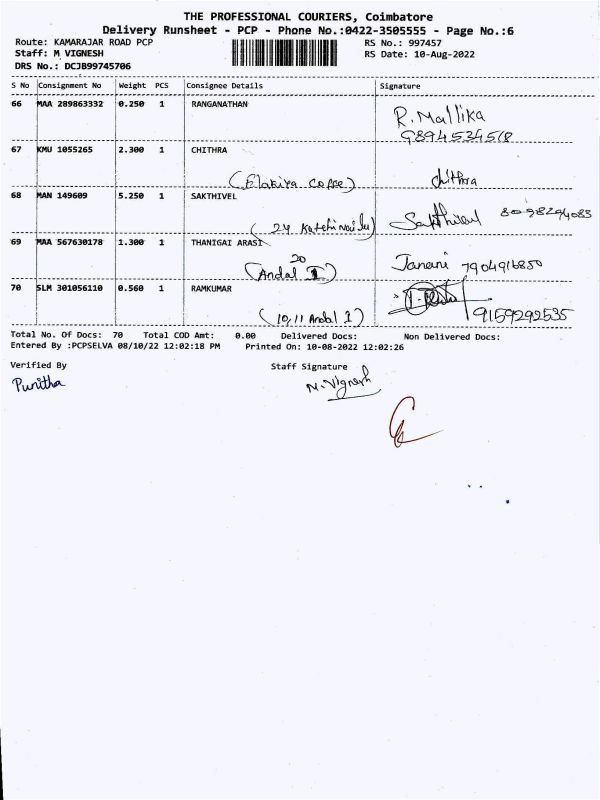 THE PROFESSIONAL COURIERS, Coimbatore
Delivery Runsheet - PCP - Phone No.:0422-3505555 - Page No.:6
Route: KAMARAJAR ROAD PCP RS No.: 997457
Staff: M VIGNESH RS Date: 10-Aug-2022
DRS No.: DCJB99745706
S No Consignment No Weight PCS Consignee Details Signature
66 MAA 289863332 0.250 1 RANGANATHAN R. Mallika
9894534518
67 KMU 1055265 2.300 1 CHITHRA
(Elakiya Coffee) chithra
68 MAN 149609 5.250 1 SAKTHIVEL Sakthivel 8098294083
(24
69 MAA 567630178 1.300 1 THANIGAI ARASI
20 Janani 7904916850
(Andal I)
70 SLM 301056110 0.560 1 RAMKUMAR
(10,11 Andal I) 9159292535
Total No. Of Docs: 70 Total COD Amt: 0.00 Delivered Docs: Non Delivered Docs:
Entered By :PCPSELVA 08/10/22 12:02:18 PM Printed On: 10-08-2022 12:02:26
Verified By Staff Signature
Punitha M. Vignesh